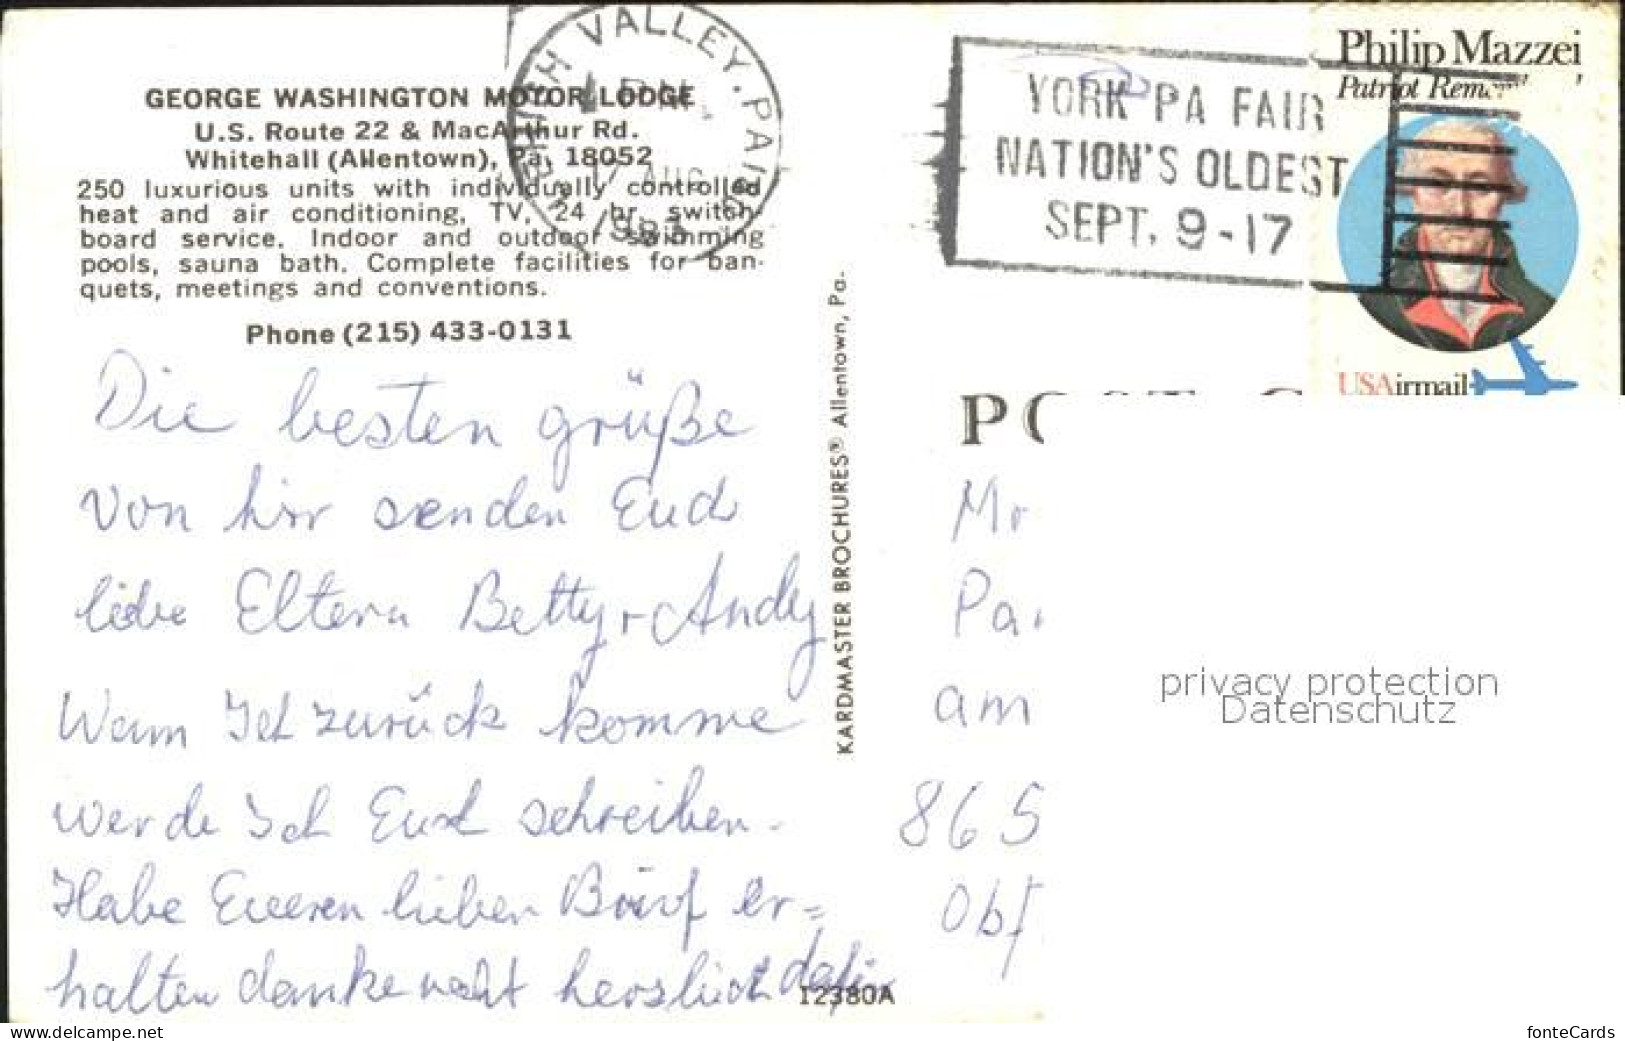 GEORGE WASHINGTON MOTOR LODGE
U.S. Route 22 & MacArthur Rd.
Whitehall (Allentown), Pa. 18052
250 luxurious units with individually controlled
heat and air conditioning, TV, 24 hr. switch-
board service. Indoor and outdoor swimming
pools, sauna bath. Complete facilities for ban-
quets, meetings and conventions.
Phone (215) 433-0131
Die besten grüße
von hir senden Euch
liebe Eltern Betty + Andy
Wenn Ich zurück komme
werde Ich Euch schreiben.
Habe Eueren lieben Brief er=
halten danke recht herslich dafür
12380A
KARDMASTER BROCHURES® Allentown, Pa.
LEHIGH VALLEY, PA
PM
17 AUG
1983
YORK PA FAIR
NATION'S OLDEST
SEPT. 9-17
Philip Mazzei
Patriot
USAirmail
PO
Mr
Pa
am
865
Obf
privacy protection
Datenschutz
www.delcampe.net
fonteCards